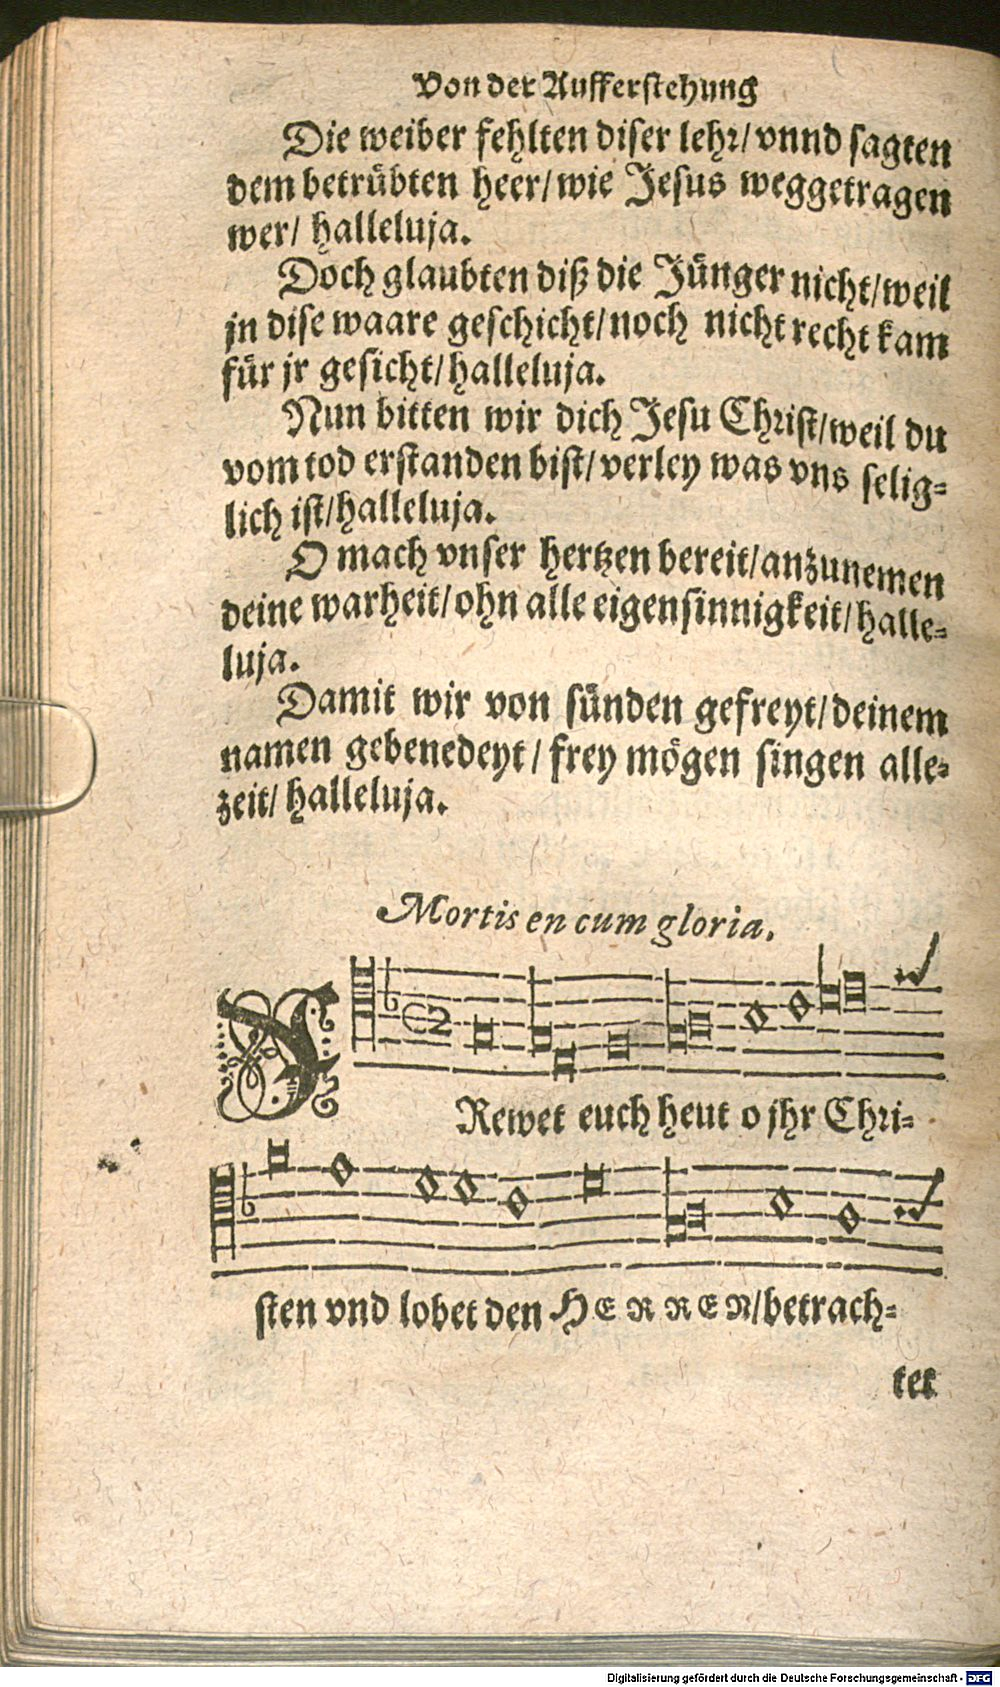 Von der Aufferstehung
Die weiber fehlten diser lehr/ vnnd sagten
dem betrübten heer/ wie Jesus weggetragen
wer/ halleluja.
Doch glaubten diß die Jünger nicht/ weil
jn dise waare geschicht/ noch nicht recht kam
für jr gesicht/ halleluja.
Nun bitten wir dich Jesu Christ/ weil du
vom tod erstanden bist/ verley was vns selig-
lich ist/ halleluja.
O mach vnser hertzen bereit/ anzunemen
deine warheit/ ohn alle eigensinnigkeit/ halle-
luja.
Damit wir von sünden gefreyt/ deinem
namen gebenedeyt/ frey mögen singen alle-
zeit/ halleluja.
Mortis en cum gloria.
FRewet euch heut o jhr Chri-
sten vnd lobet den HERREN/ betrach-
tet
Digitalisierung gefördert durch die Deutsche Forschungsgemeinschaft - DFG